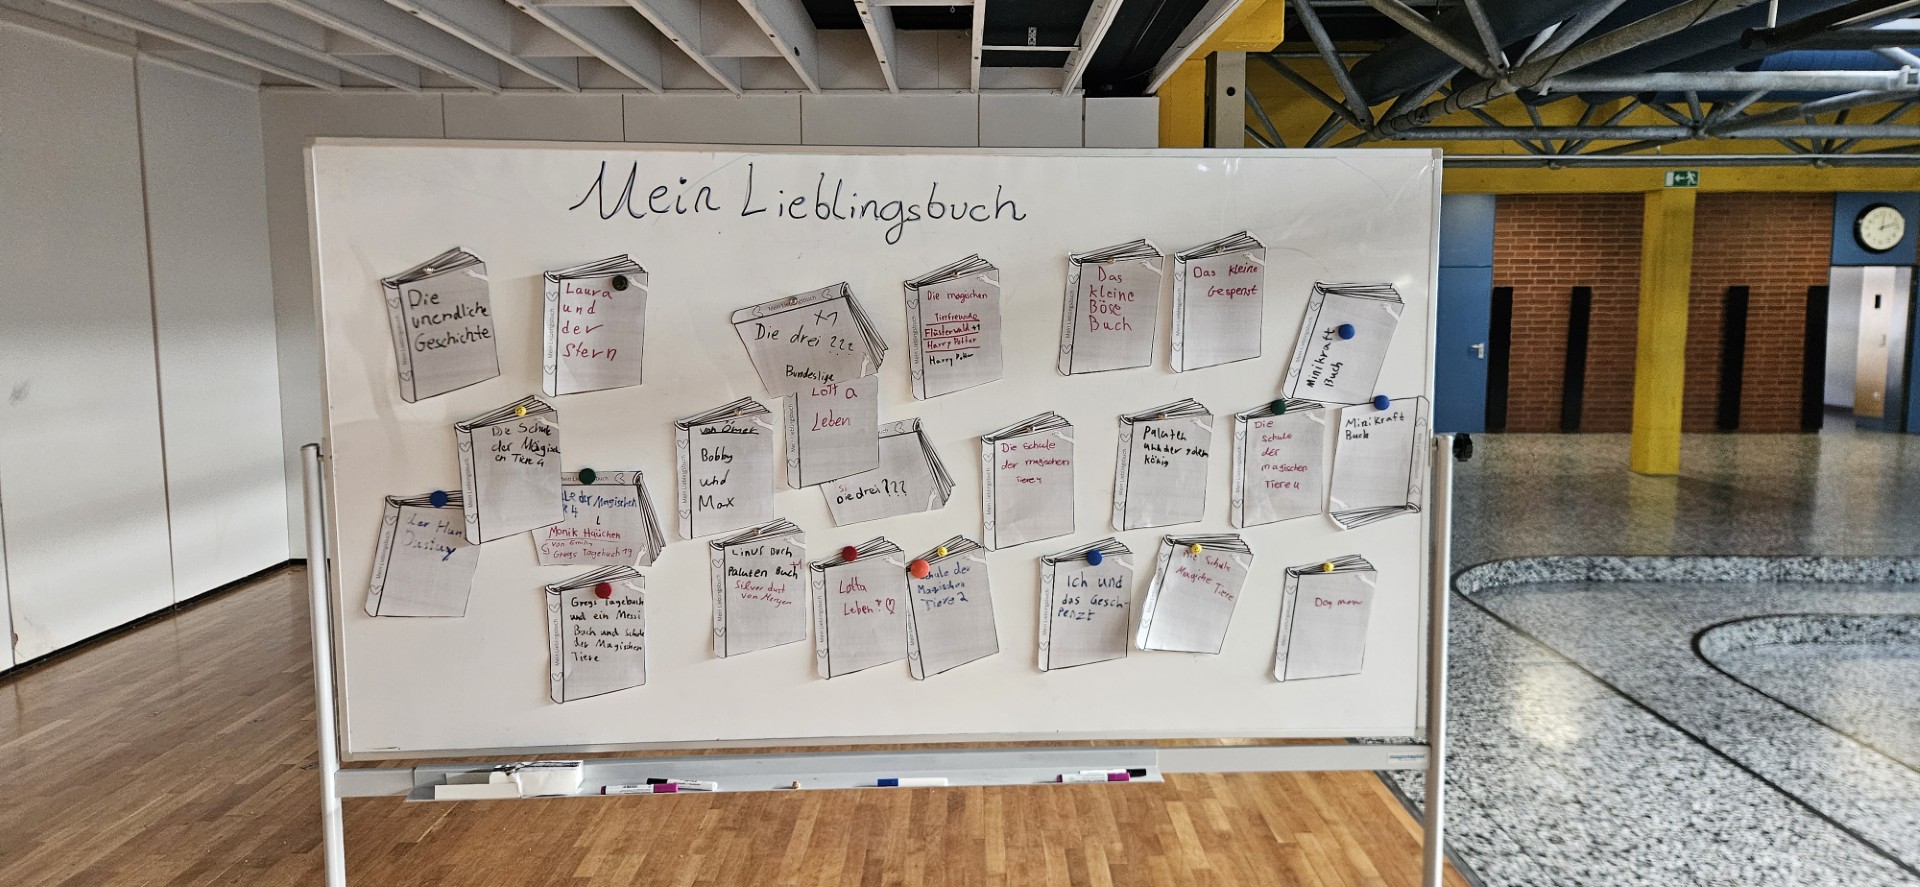 Mein Lieblingsbuch
Die
unendliche
Geschichte
Laura
und
der
Stern
Mein Lieblingsbuch
x1
Die drei ???
Bundeslige
Die magischen
Tierfreunde
Flüsterwald +1
Harry Potter
Harry Potter
Das
kleine
Böse
Buch
Das kleine
Gespenst
Minikraft
Buch
Die Schule
der Magisch
en Tiere 4
von Ömer
Bobby
und
Max
Lotta
Leben
Die drei ???
Die schule
der magischen
Tiere 4
Paluten
König
Die
Schule
der
magischen
Tiere 4
Minikraft
Buch
der Hun
le der Magischen
4
Monik Häuchen
von Emily
Gregs Tagebuch 19
Gregs Tagebuch
und ein Messi
Buch und Schule
der Magischen
Tiere
Linus Buch
Paluten Buch +1
Silver dust
von
Lotta
Leben
Schule der
Magischen
Tiere 2
Ich und
das Gesch-
penzt
Schule
Magiche Tiere
Dog man